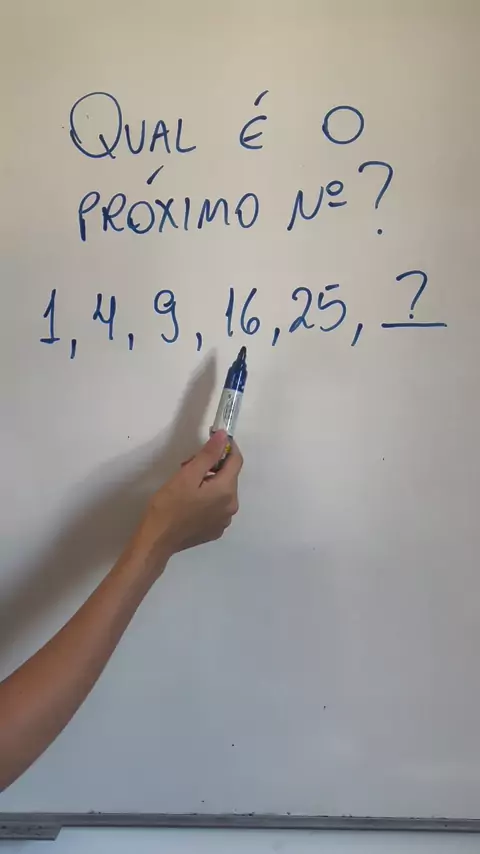 QUAL É O
PRÓXIMO Nº?
1, 4, 9, 16, 25, ?